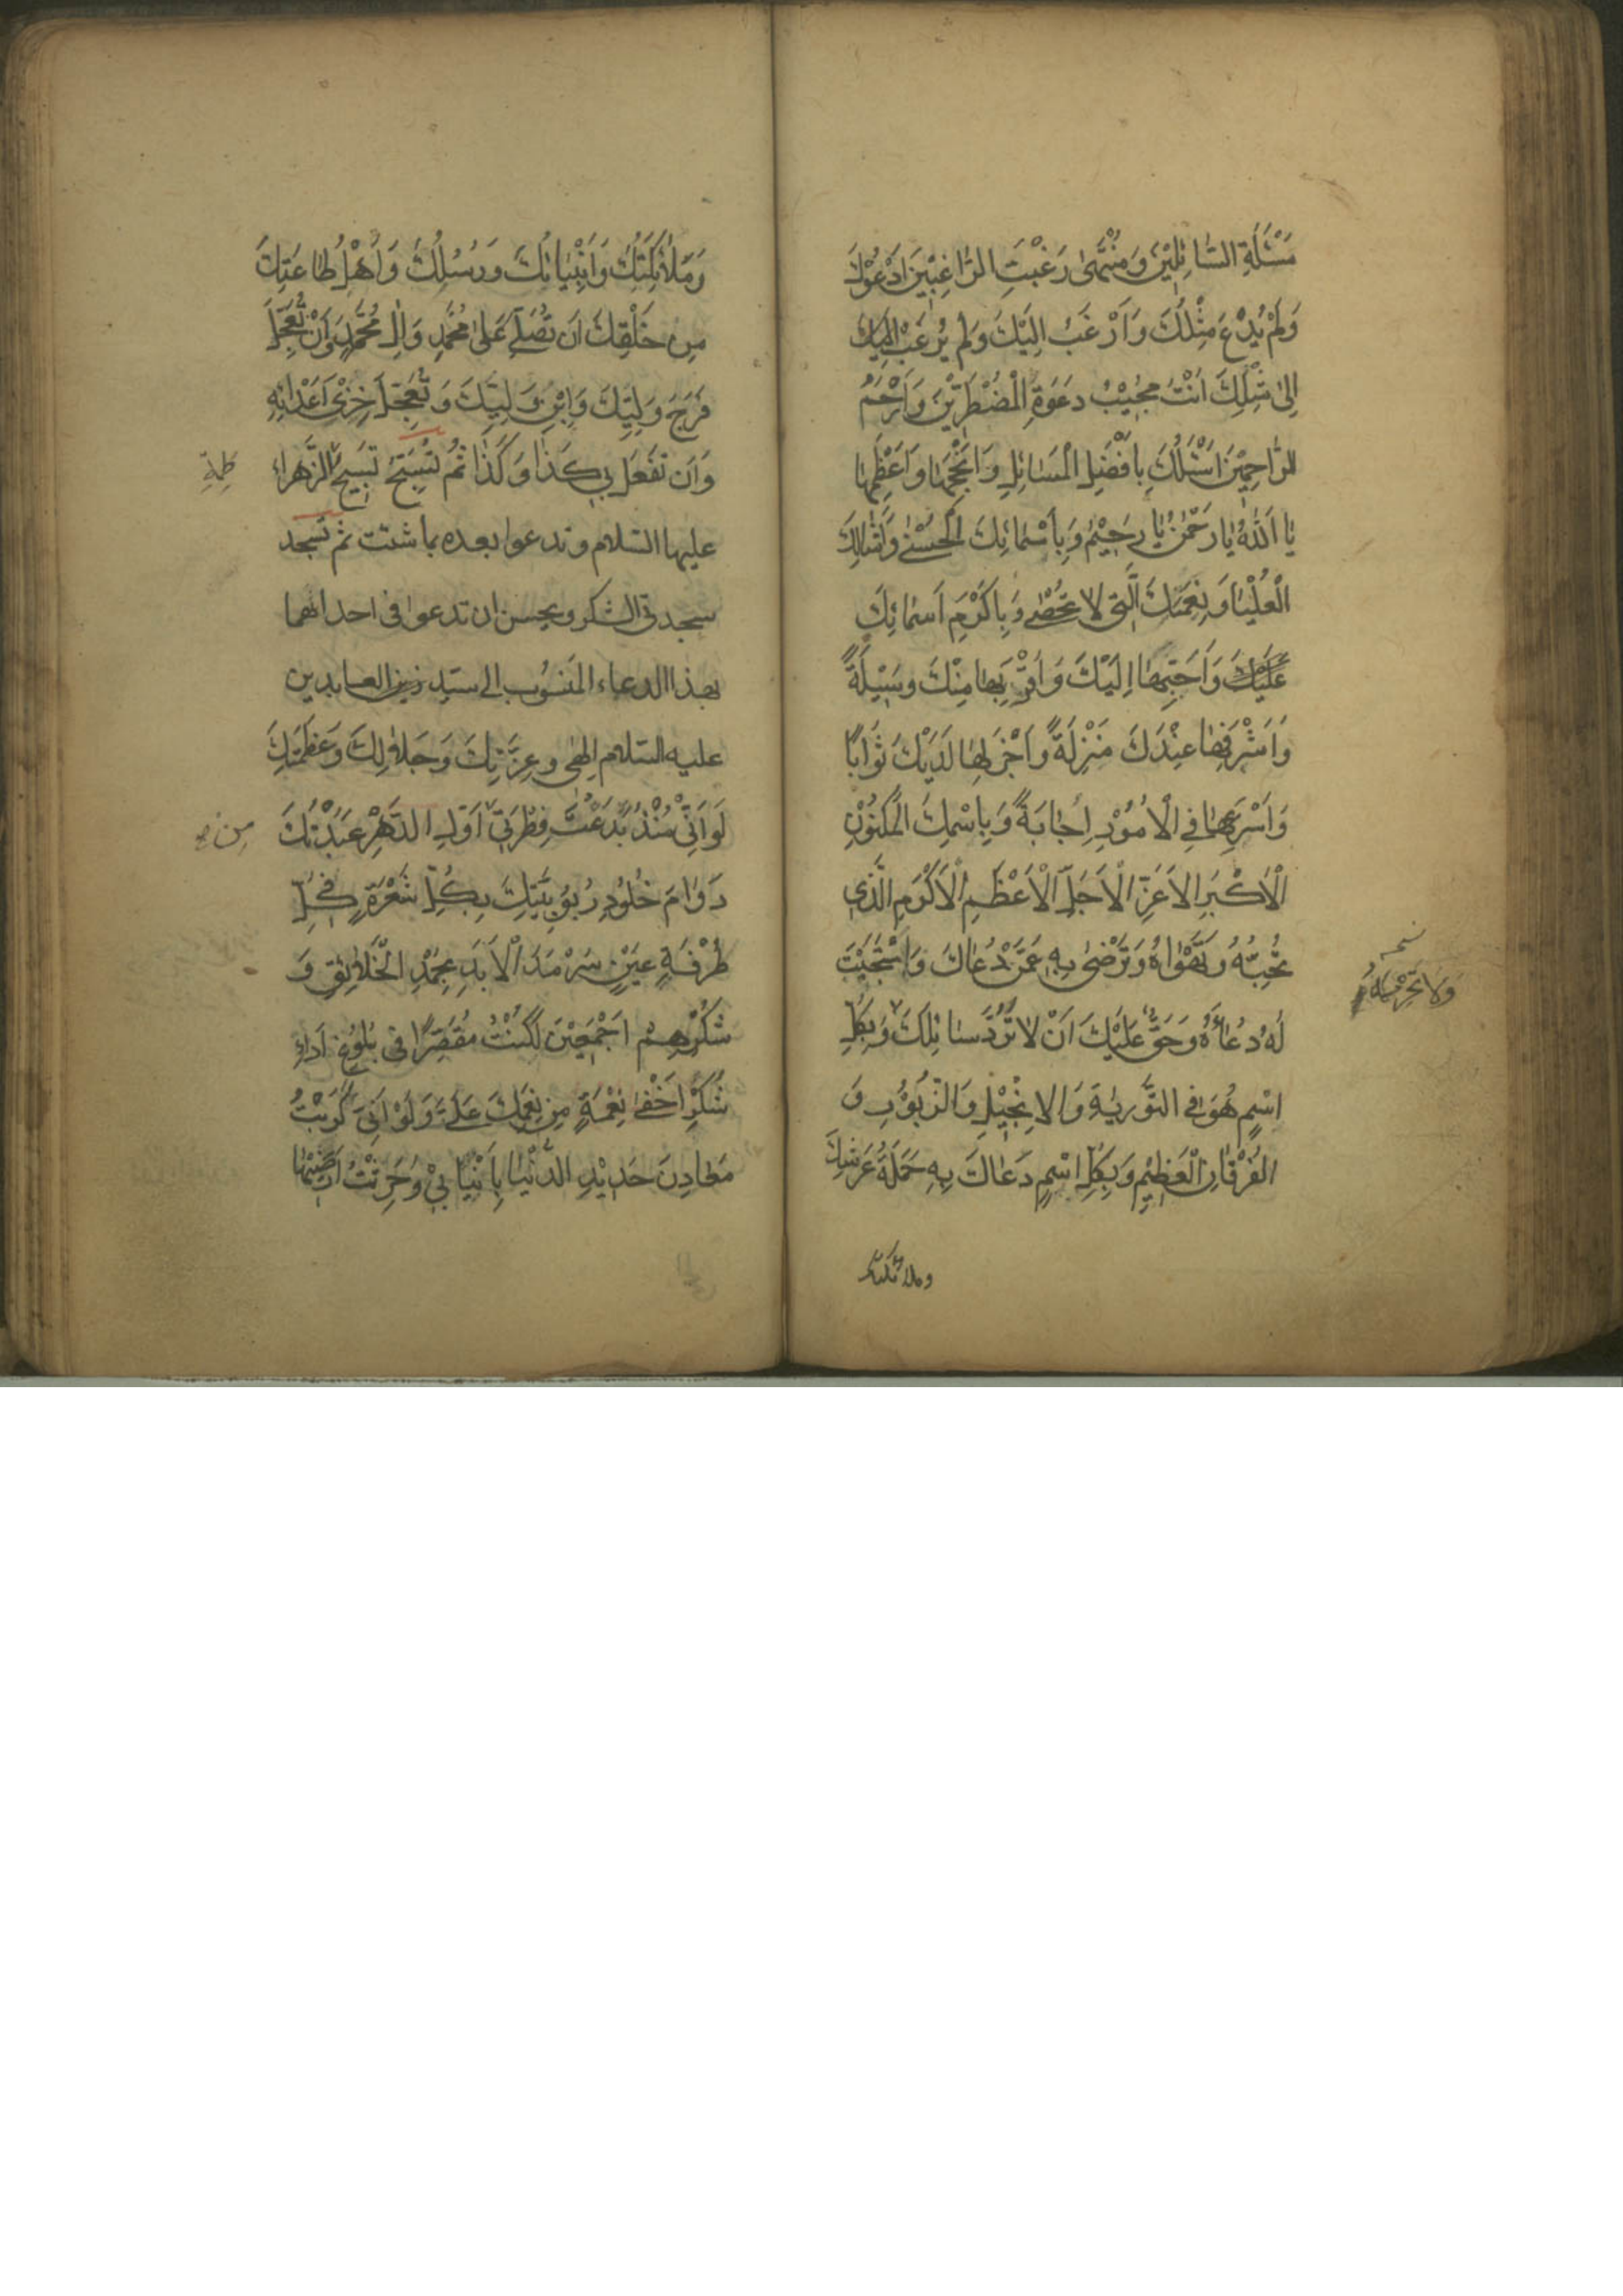 مَسْئَلَةِ السَّائِلِيْنَ وَمُنْتَهىٰ رَغْبَتِ الرّٰاغِبِيْنَ اَدْعُوْكَ
وَلَمْ يُدْعَ مِثْلُكَ وَاَرْغَبُ اِلَيْكَ وَلَمْ يُرْغَبْ
اِلىٰ مِثْلِكَ اَنْتَ مُجِيْبُ دَعْوَةِ الْمُضْطَرِّيْنَ وَاَرْحَمُ
الرّٰاحِمِيْنَ اَسْئَلُكَ بِاَفْضَلِ الْمَسٰائِلِ وَاَنْجَحِهٰا وَاَعْظَمِهٰا
يٰا اَللّٰهُ يٰا رَحْمٰنُ يٰا رَحِيْمُ وَبِاَسْمٰائِكَ الْحُسْنىٰ وَاَمْثٰالِكَ
الْعُلْيٰا وَنِعَمِكَ الَّتِى لا تُحْصىٰ وَبِاَكْرَمِ اَسْمٰائِكَ
عَلَيْكَ وَاَحَبِّهٰا اِلَيْكَ وَاَقْرَبِهٰا مِنْكَ وَسِيْلَةً
وَاَشْرَفِهٰا عِنْدَكَ مَنْزِلَةً وَاَجْزَلِهٰا لَدَيْكَ ثَوٰابًا
وَاَسْرَعِهٰا فِى الْاُمُوْرِ اِجٰابَةً وَبِاسْمِكَ الْمَكْنُوْنِ
الْاَكْبَرِ الْاَعَزِّ الْاَجَلِّ الْاَعْظَمِ الْاَكْرَمِ الَّذِى
تُحِبُّهُ وَتَهْوٰاهُ وَتَرْضىٰ بِهِ عَمَّنْ دَعٰاكَ وَاسْتَجَبْتَ
لَهُ دُعٰاءَهُ وَحَقٌّ عَلَيْكَ اَنْ لا تَرُدَّ سٰائِلَكَ وَبِكُلِّ
اسْمٍ هُوَ فِى التَّوْرٰيةِ وَالاِنْجِيْلِ وَالزَّبُوْرِ وَ
الفُرْقٰانِ الْعَظِيْمِ وَبِكُلِّ اسْمٍ دَعٰاكَ بِهِ حَمَلَةُ عَرْشِكَ
وملائكتك
وَلا تَحْرِمْهُ
وَمَلٰائِكَتُكَ وَاَنْبِيٰائُكَ وَرُسُلُكَ وَاَهْلُ طٰاعَتِكَ
مِنْ خَلْقِكَ اَنْ تُصَلِّىَ عَلىٰ مُحَمَّدٍ وَاٰلِ مُحَمَّدٍ وَاَنْ تُعَجِّلَ
فَرَجَ وَلِيِّكَ وَابْنِ وَلِيِّكَ وَتُعَجِّلَ خِزْىَ اَعْدٰائِهِ
وَاَن تَفْعَلَ بِى كَذٰا وَكَذٰا ثُمَّ تُسَبِّحُ تَسْبِيْحَ الزَّهراءِ
عليها السّلام وتدعوا بعده بما شئت ثم تسجد
سجدتى الشكر ويحسن ان تدعوا فى احدٰاهما
بهذا الدعاء المَنسُوب الى سيّد زين العابدين
عليه السّلام اِلٰهى وعِزَّتِكَ وَجَلاٰلِكَ وَعَظَمَتِكَ
لَوْ اَنِّى مُنْذُ بَدَعْتَ فِطْرَتِى اَوَّلِ الدَّهْرِ عَبَدْتُكَ
دَوٰامَ خُلُوْدِ رُبُوْبِيَّتِكَ بِكُلِّ شَعْرَةٍ فِى كُلِّ
طَرْفَةِ عَيْنٍ سَرْمَدَ الْاَبَدِ بِحَمْدِ الْخَلٰايِقِ وَ
شُكْرِهِمْ اَجْمَعِيْنَ لَكُنْتُ مُقَصِّرًا فى بُلُوْغِ اَدٰاءِ
شُكْرِ اَخْفىٰ نِعْمَةٍ مِنْ نِعَمِكَ عَلَىَّ وَلَوْ اَنِّى كَرَبْتُ
مَعٰادِنَ حَدِيْدِ الدُّنْيٰا بِاَنْيٰابِيْ وَحَرَثْتُ اَرَضِيْهٰا